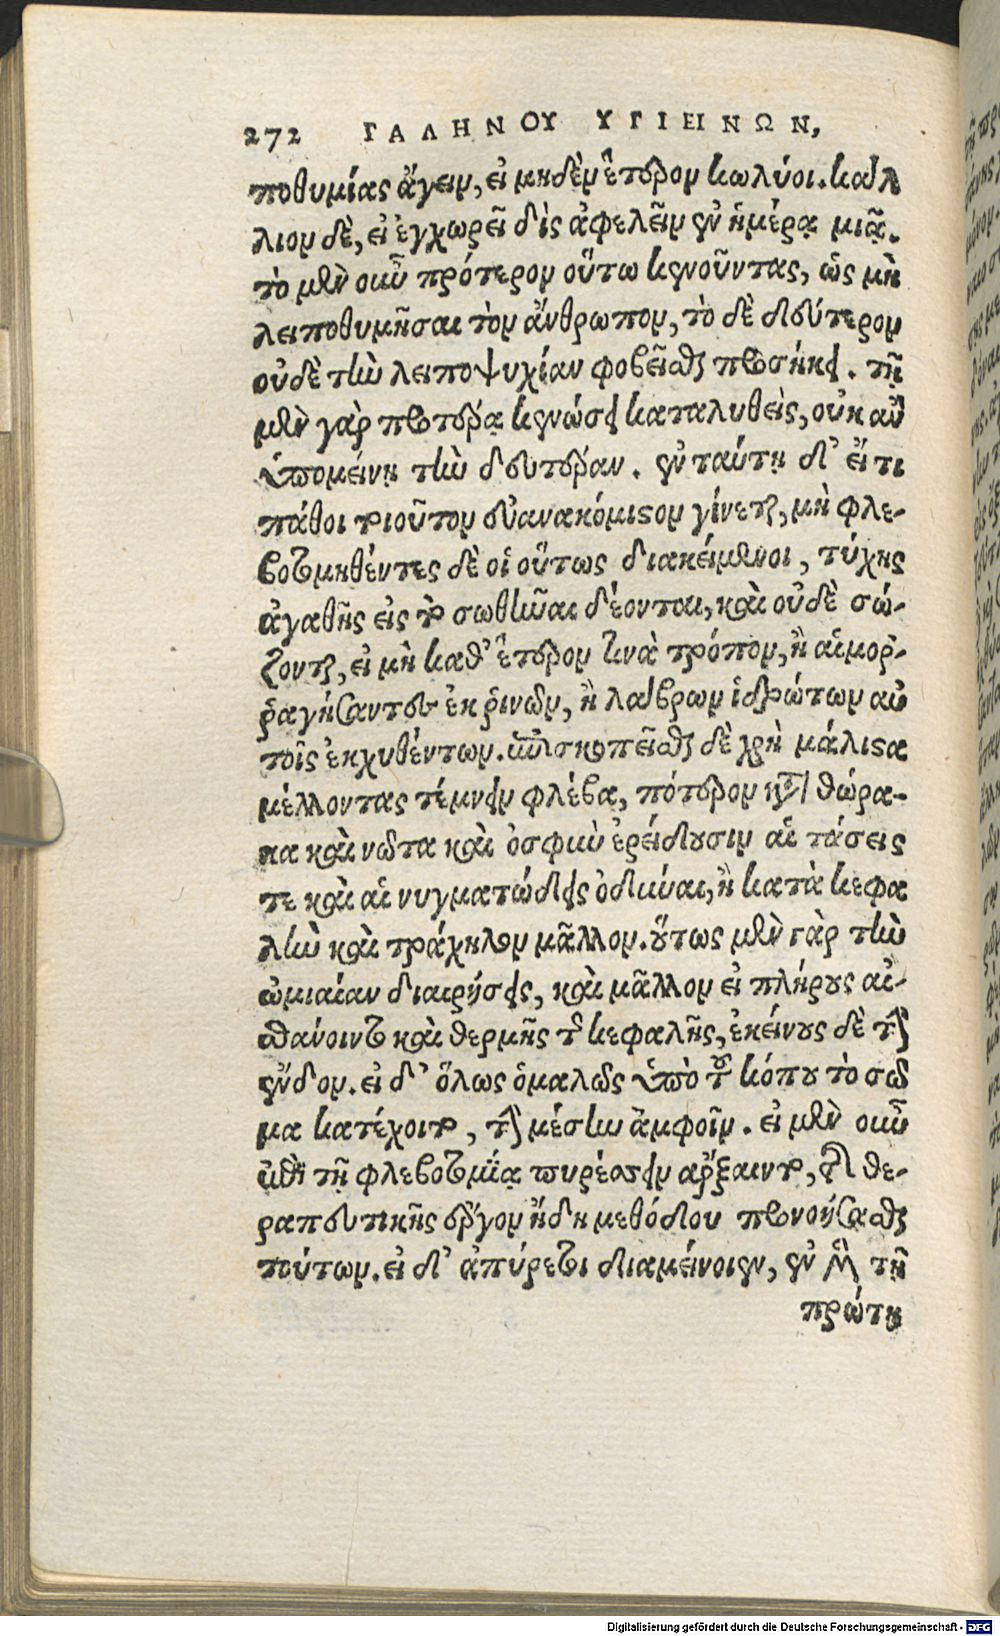 272 ΓΑΛΗΝΟΥ ΥΓΙΕΙΝΩΝ,
ποθυμίας ἄγειν, εἰ μηδὲν ἕτερον κωλύοι. κάλ
λιον δὲ, εἰ ἐγχωρεῖ δὶς ἀφελεῖν ἐν ἡμέρᾳ μιᾷ.
τὸ μὲν οὖν πρότερον οὕτω κενοῦντας, ὡς μὴ
λειποθυμῆσαι τὸν ἄνθρωπον, τὸ δὲ δεύτερον
οὐδὲ τὴν λειποψυχίαν φοβεῖσθαι προσήκει. τῇ
μὲν γὰρ προτέρᾳ κενώσει καταλυθεὶς, οὐκ ἂν
ὑπομείνῃ τὴν δευτέραν. ἐν ταύτῃ δ' εἴ τι
πάθοι τοιοῦτον εὐανακόμιστον γίνεται, μὴ φλε-
βοτομηθέντες δὲ οἱ οὕτως διακείμενοι, τύχης
ἀγαθῆς εἰς τὸ σωθῆναι δέονται, καὶ οὐδὲ σώ-
ζονται, εἰ μὴ καθ' ἕτερον τινὰ τρόπον, ἢ αἱμορ-
ῥαγήσαντος ἐκ ῥινῶν, ἢ λάβρων ἱδρώτων αὐ
τοῖς ἐκχυθέντων. ἐπισκοπεῖσθαι δὲ χρὴ μάλιστα
μέλλοντας τέμνειν φλέβα, πότερον κατὰ θώρα-
κα καὶ νῶτα καὶ ὀσφὺν ἐρείδουσιν αἱ τάσεις
τε καὶ αἱ νυγματώδεις ὀδύναι, ἢ κατὰ κεφα
λὴν καὶ τράχηλον μᾶλλον. οὕτως μὲν γὰρ τὴν
ὠμιαίαν διαιρήσεις, καὶ μᾶλλον εἰ πλήρους αἰ-
σθάνοιντο καὶ θερμῆς τῆς κεφαλῆς, ἐκείνους δὲ τὴν
ἔνδον. εἰ δ' ὅλως ὁμαλῶς ὑπὸ τοῦ κόπου τὸ σῶ
μα κατέχοιτο, τὴν μέσην ἀμφοῖν. εἰ μὲν οὖν
ἐπὶ τῇ φλεβοτομίᾳ πυρέσσειν ἄρξαιντο, τῆς θε-
ραπευτικῆς ἔργον ἤδη μεθόδου προνοήσασθαι
τούτων. εἰ δ' ἀπύρετοι διαμείνοιεν, ἐν μὲν τῇ
πρώτῃ
Digitalisierung gefördert durch die Deutsche Forschungsgemeinschaft - DFG